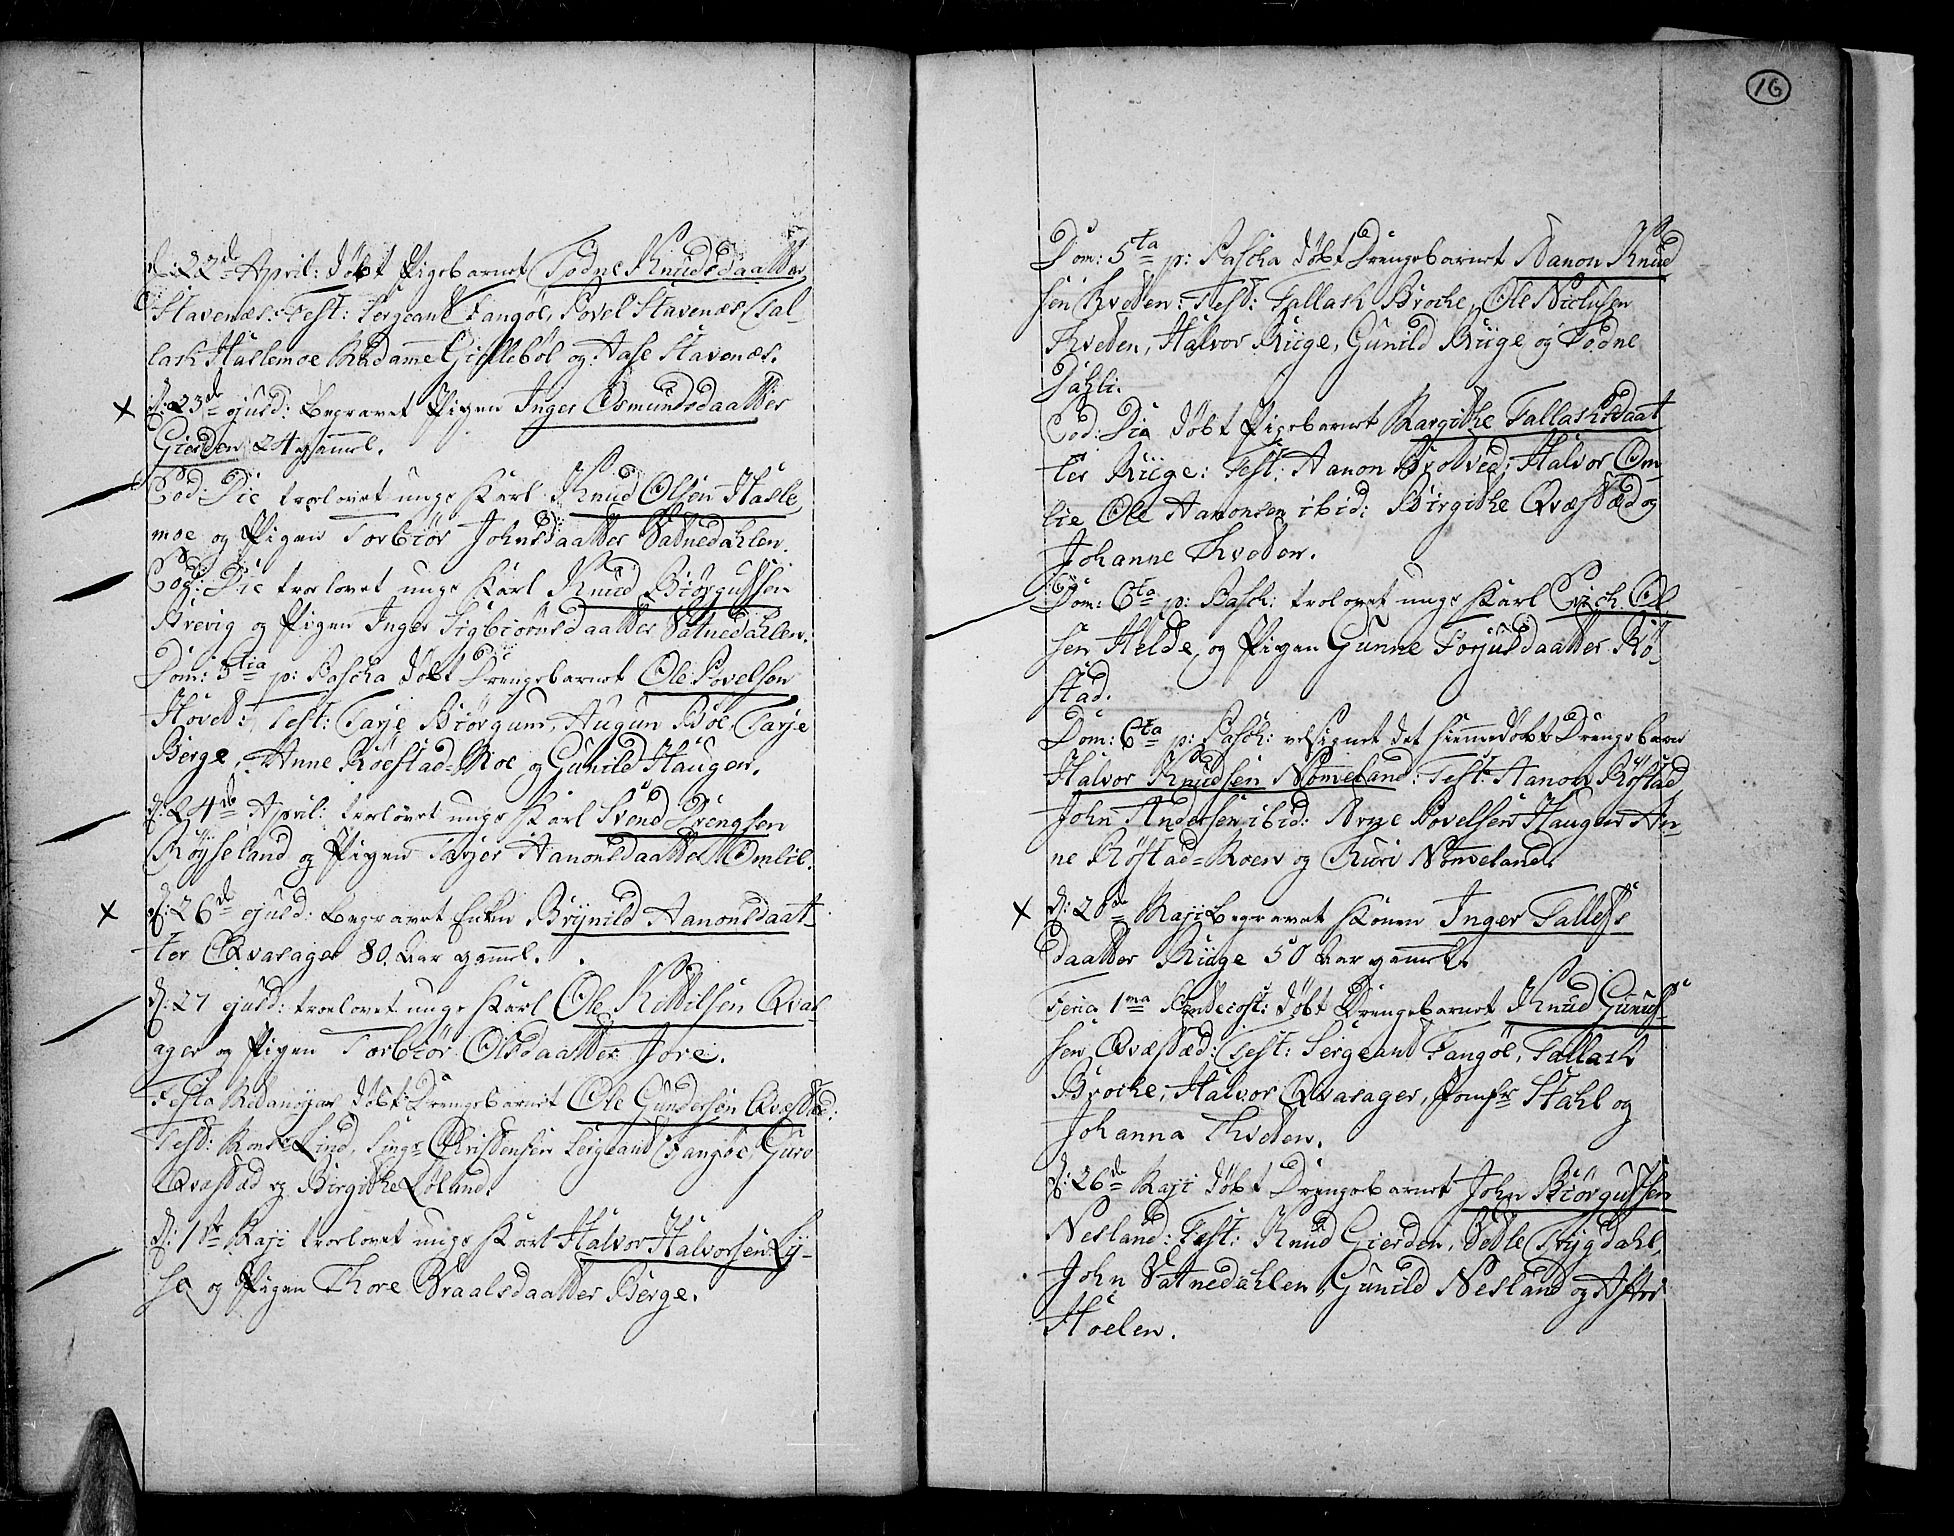 d: 22de April: døbt Pigebarnet Todne Knudsdaatter
Stavenæs: Test: Sergeant Fangöl, Povel Stavenæs, Tal-
lach Haslemoe Madamme Gislleböl og Aase Stavenæs.
d: 23de ejusd: begravet Pigen Inger Osmundsdaatter
Gierden 24 gammel.
Eod: Die troelovet unge Karl Knud Olsen Hasle
moe og Pigen Torbiör Johnsdaatter Vatnedahlen.
Eod: Die troelovet unge Karl Knud Biörgufsen
Strevig og Pigen Inger Sigbiörnsdaatter Vatnedahlen.
Dom: 3tia p: Pascha døbt Drengebarnet Ole Povelsen
Hoved: Test: Tarje Biörgum, Augun Böe, Tarje
Berge, Anne Röestad-Moe og Gunild Haugen.
d: 24de April: troelovet unge Karl Svend Drengsen
Röyseland og Pigen Tarjer Aanonsdaatter Omlie.
d: 26de ejusd: begravet Enken Brynild Aanonsdaat-
ter Qvarager 80. Aar gammel.
d: 27 ejusd: troelovet unge Karl Ole Kittilsen Qvar
ager og Pigen Torbiör Olsdaatter Jore.
Festo döbt Drengebarnet Ole Gundersen Qvæstæd:
Test: Lind, Christensen Sergeant Fangöl, Guro
Qvæstad og Birgithe Löland.
d: 1ste Maji troelovet unge Karl Halvor Halvorsen Ly-
se og Pigen Thore Braalsdaatter Berge.
16
Dom: 5ta p: Pascha döbt Drengebarnet Aanon Knud
sen Kveden: Test: Tallach Brocke, Ole Niclusen
Kveden, Halvor Riige, Gunild Riige og Todne
Dahli.
Eod: Die döbt Pigebarnet Margithe Tallachsdaat
ter Riige: Test: Aanon Brotved, Halvor Om-
lie Ole Aanonsen ibid: Birgithe Qvæstæd og
Johanne Kveden.
Dom: 6ta p: Pasch: trolovet unge Karl Erich Ol
sen Helde, og Pigen Gunne Torjusdaatter Rö-
stad.
Dom: 6ta p: Pasch: velsignet det hiemmedöbt Drengebarn
Halvor Knudsen Nomeland: Test: Aanon Röstad
John Andersen ibid: Arne Povelsen Haugen An-
ne Röstad-Moen og Guri Nomeland.
d: 20de Maji begravet Konen Inger Tallefs
daatter Riige 50 Aar gammel.
Feria 1ma Pendecost: döbt Drengebarnet Knud Gunuf-
sen Qvæstæd: Test: Sergeant Fangöl, Tallach
Brocke, Halvor Qvarager, Jomfr Stahl og
Johanna Kveden.
d: 26de Maji döbt Drengebarnet John Biörgufsen
Nesland: Test: Knud Gierden, Vetle Trygdahl,
John Vatnedahlen, Gunild Nesland og
Hoelen.